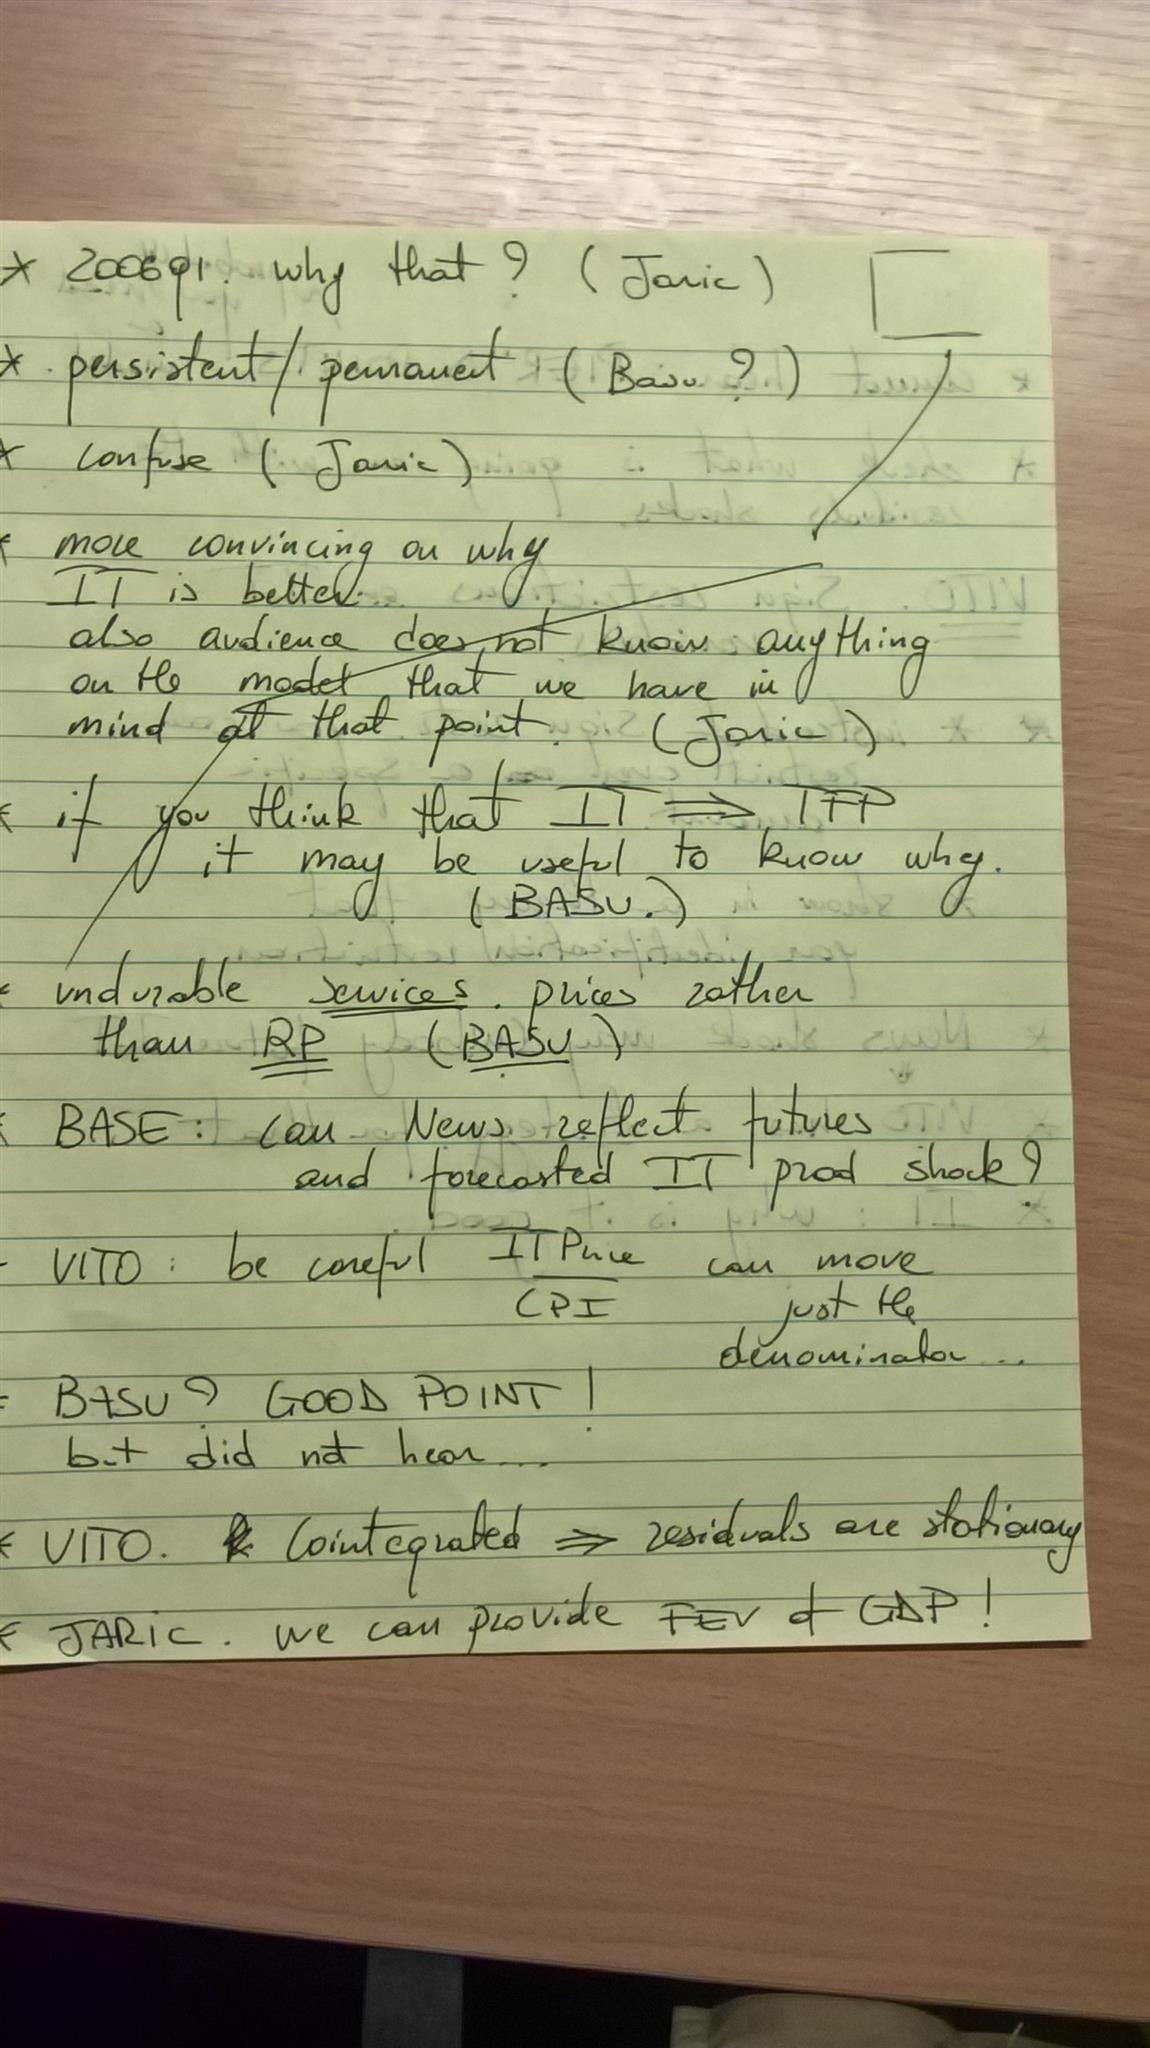 * 2006q1. why that? (Jaric)
* persistent/ permanent (Basu?)
* confuse (Jaric)
* more convincing on why
IT is better.
also audience does not know anything
on the model that we have in
mind at that point. (Jaric)
* if you think that IT ⇒ TFP
it may be useful to know why.
(BASU.)
* undurable services. prices rather
than RP (BASU)
* BASE: can News reflect futures
and forecasted IT prod shock?
- VITO: be careful IT Price can move
CPI just the
denominator...
* BASU? GOOD POINT!
but did not hear...
* VITO. Cointegrated ⇒ residuals are stationary
* JARIC. we can provide FEV of GDP!